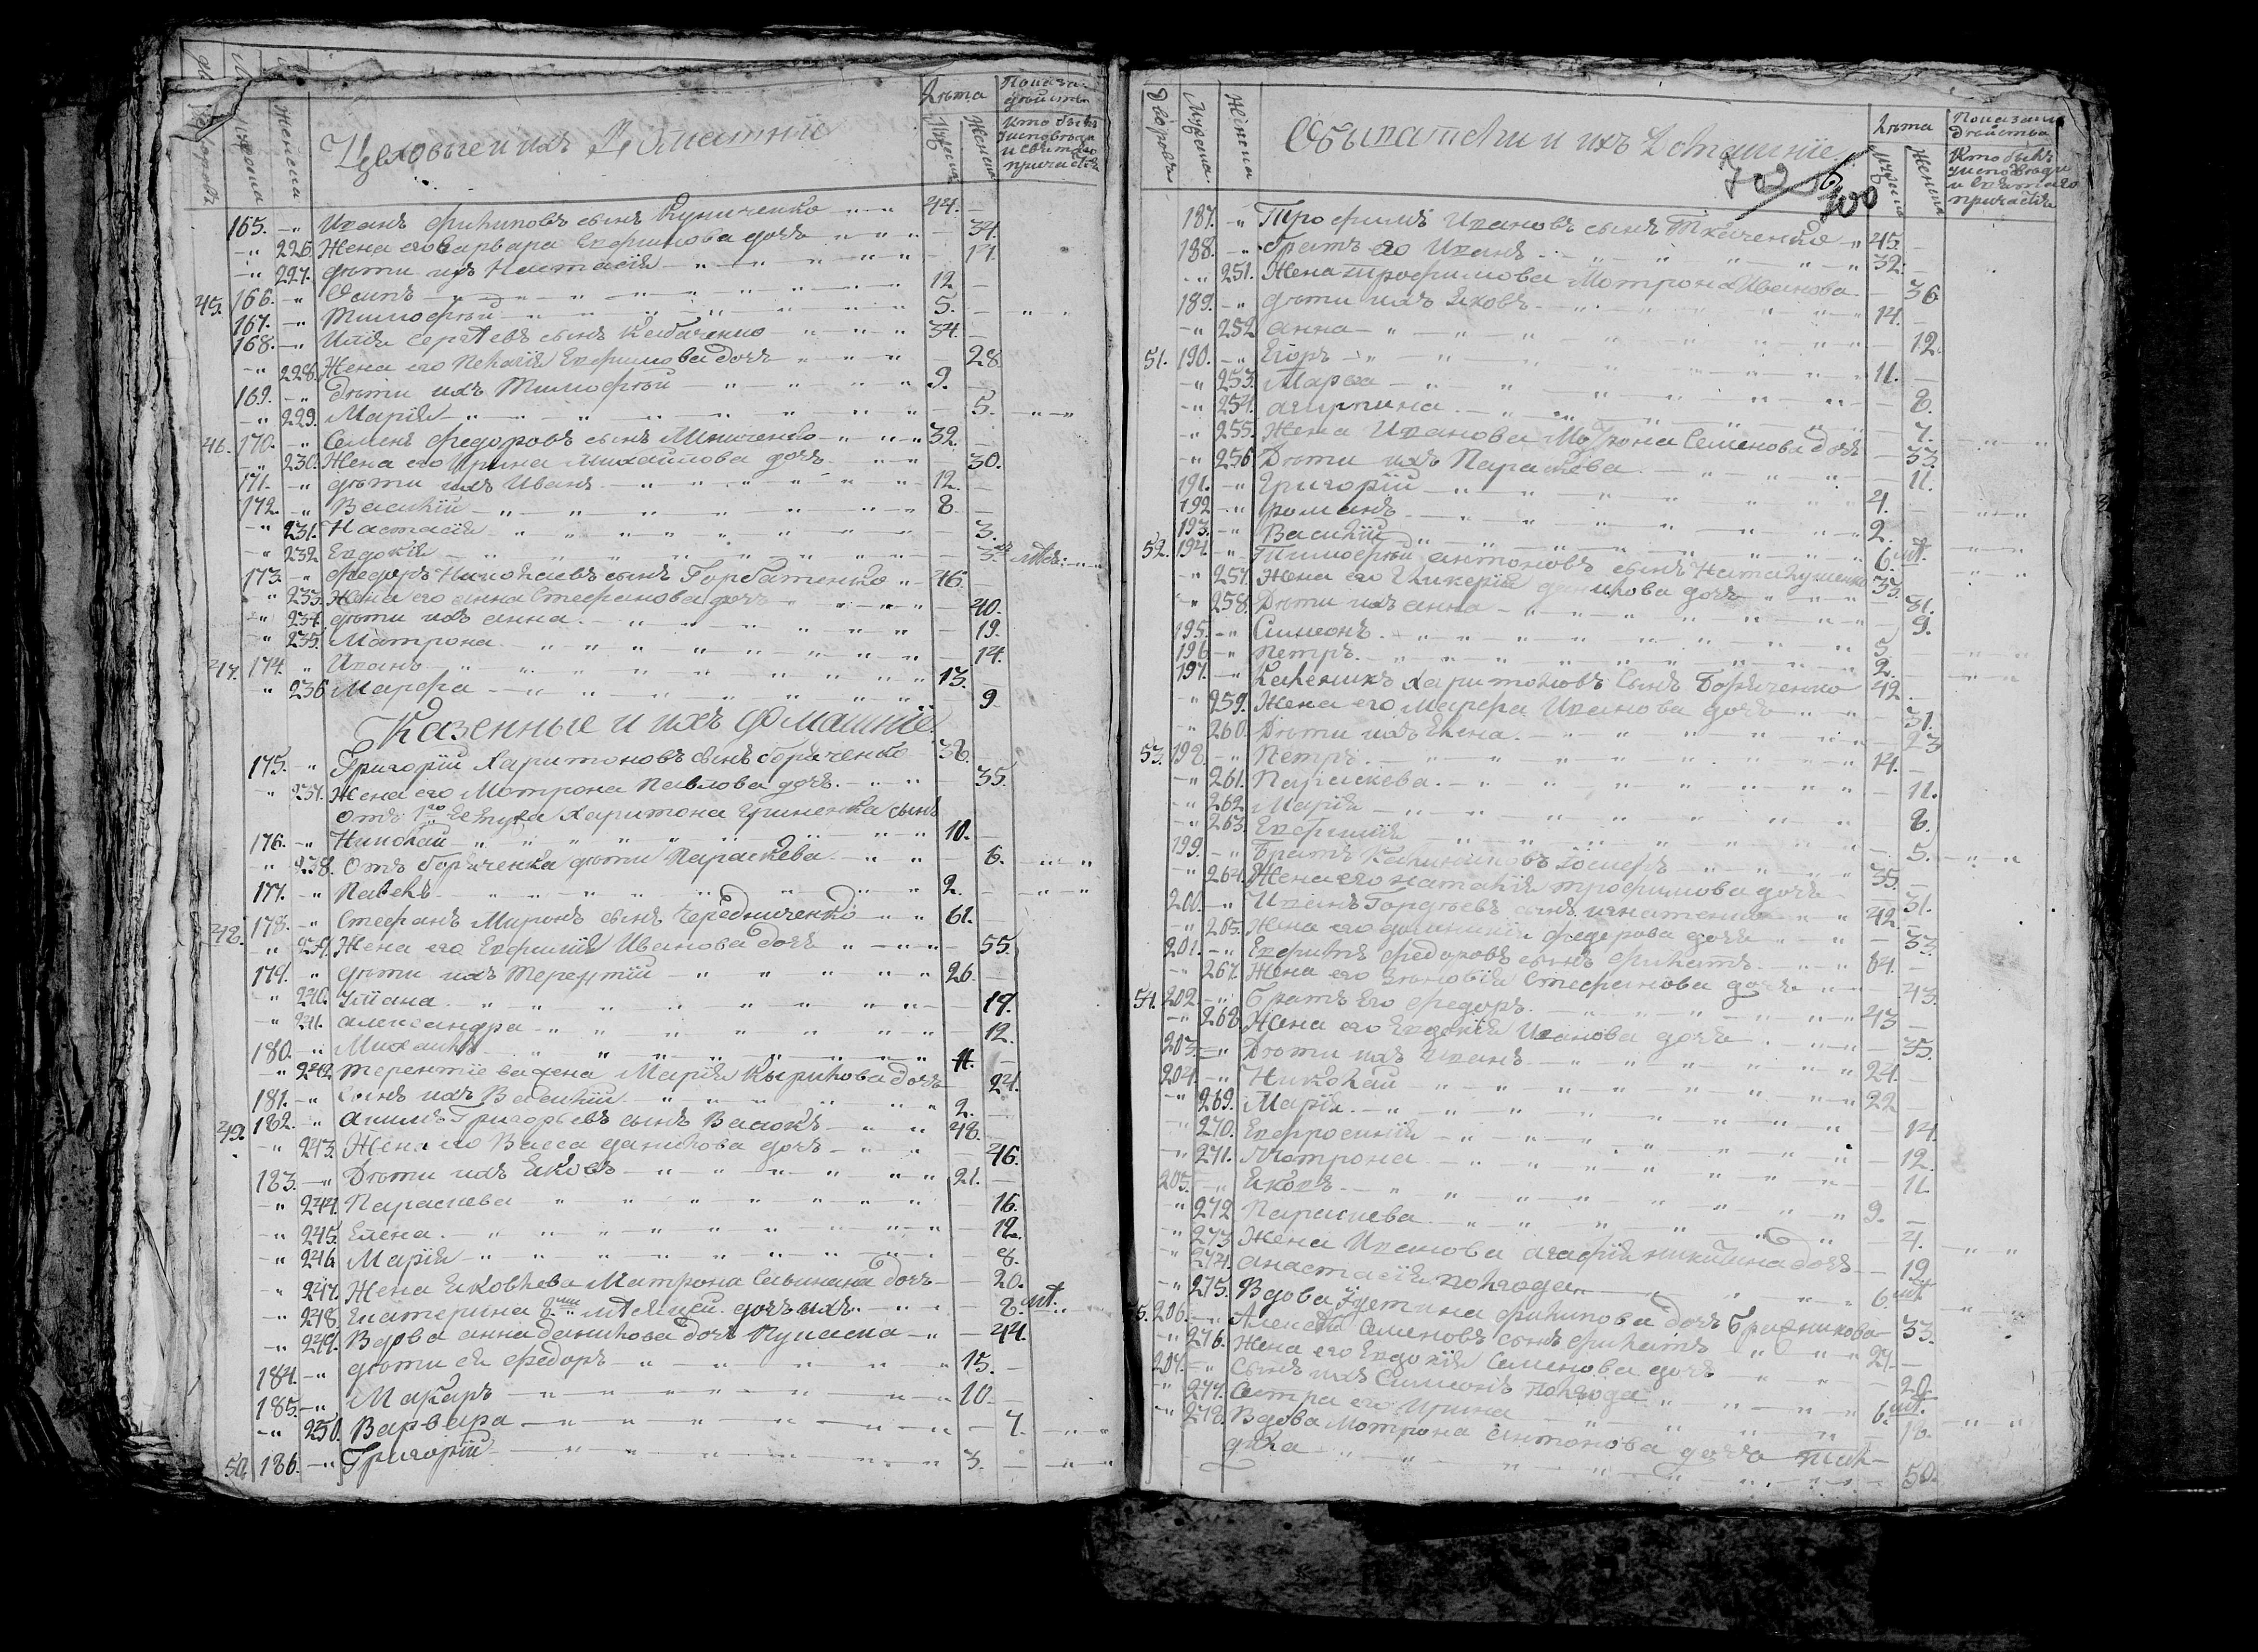 Цеховые и ихъ Домашнїе
Дворовъ Мужска Женска Лѣта Мужска Женска
Показанїе дѣйства Кто былъ у исповѣди и святаго причастїя
165. Иванъ Филиповъ сынъ Куниченко 44.
226. Жена его Варвара Ефимова дочь 34.
227. Дѣти ихъ Настасїя 17.
166. Осипъ 12
45. 167. Тимофей 5.
168. Илїя Сергѣевъ сынъ Кабаченко 34.
228. Жена его Пелагїя Ефимова дочь 28
169. Дѣти ихъ Тимофей 9.
229. Марїя 5.
46. 170. Семенъ Федоровъ сынъ Миниченко 32.
230. Жена его Ирина Михайлова дочь 30.
171. Дѣти ихъ Иванъ 12.
172. Василїй 8
231. Настасїя 3.
232 Евдокїя 3. мѣс.
173. Федоръ Николаевъ сынъ Горбатенко 46.
233. Жена его Анна Стефанова дочь 40.
234. Дѣти ихъ Анна 19.
235. Матрона 14.
47. 174. Иванъ 13.
236 Марфа 9
Казенные и ихъ домашнїе
175. Григорїй Харитоновъ сынъ Боряченко 38.
237. Жена его Мотрона Павлова дочь 35.
Отъ 1го Ея мужа Харитона Гриненка сынъ
176. Николай 10.
238. Отъ Боряченка дѣти Параскева 6.
177. Павелъ 2.
48. 178. Стефанъ Миронъ сынъ Чередниченко 61.
239. Жена его Евфимїя Иванова дочь 55.
179. Дѣти ихъ Терентїй 26.
240. Улїана 19.
241. Александра 12.
180. Михаилъ 11.
242. Терентїева жена Марїя Кырилова дочь 24.
181. Сынъ ихъ Василїй 2.
49. 182. Акимъ Григорьевъ сынъ Васюкъ 48.
243. Жена его Васса Данилова дочь 46.
183. Дѣти ихъ Яковъ 21.
244. Параскева 16.
245. Елена 12.
246 Марїя 8.
247. Жена Яковлева Матрона Савината дочь 20.
248. Екатерина 8ми мѣсяцей дочь ихъ 8. мѣ.
249. Вдова Анна Данилова дочь 44.
184. Дѣти ея Федоръ 15.
185. Макаръ 10
250. Варвара 7.
50. 186. Григорїй 3.
Обыватели и ихъ Домашнїе
Дворовъ Мужска Женска Лѣта Мужска Женска
Показанїе дѣйства Кто былъ у исповѣди и святаго причастїя
702 б
700
187. Трофимъ Ивановъ сынъ Ткаченко 45.
188. Братъ его Иванъ 32.
251. Жена Трофимова Мотрона Иванова 36
189. Дѣти ихъ Яковъ 14.
252 Анна 12.
51. 190. Егоръ 11.
253. Марфа 8.
254. Агирпина 7.
255. Жена Иванова Мотрона Семенова дочь 33.
256 Дѣти ихъ Параскева 11.
191. Григорїй 4.
192 Романъ 2.
193. Василїй 6. мѣ.
52. 194. Тимофей Антоновъ сынъ 33.
257. Жена его Гликерїя Данилова дочь 31.
258. Дѣти ихъ Анна 9.
195. Симеонъ 5
196 Петръ 2.
197. Калиникъ Харитоновъ сынъ Боряченко 42
259. Жена его Марфа Иванова дочь 31.
260. Дѣти ихъ Елена 23
53. 198. Петръ 14.
261. Параскева 11.
262. Марїя 8.
263. Евфимїя 5.
199. Братъ Калиниковъ Їосифъ 35.
264. Жена его Наталїя Трофимова дочь 31.
200. Иванъ Гордѣевъ сынъ Игнатенко 42.
265. Жена его Федорова дочь 33.
201. Евфимъ Федоровъ сынъ Филатъ 84.
267. Жена его Зѣновїя Стефанова дочь 43.
54. 202. Братъ Его Федоръ 43
268 Жена его Евдокїя Иванова дочь 35.
203. Дѣти ихъ Иванъ 24.
204. Николай 22
269. Марїя 14.
270. Евфросинїя 12.
271. Мотрона 11.
205. Яковъ 9.
272 Параскева 7.
273 Жена Иванова Агафїя Никитина дочь 19
274. Анастасїя полгода 6. мѣ.
275. Вдова Устина Филипова дочь 33.
55. 206. Алексѣй Семеновъ сынъ Филатъ 27.
276. Жена его Евдокїя Семенова дочь 20.
207. Сынъ ихъ Симеонъ полгода 6. мѣ.
277. Сестра его Ирина 18.
278. Вдова Мотрона Антонова дочь
50.